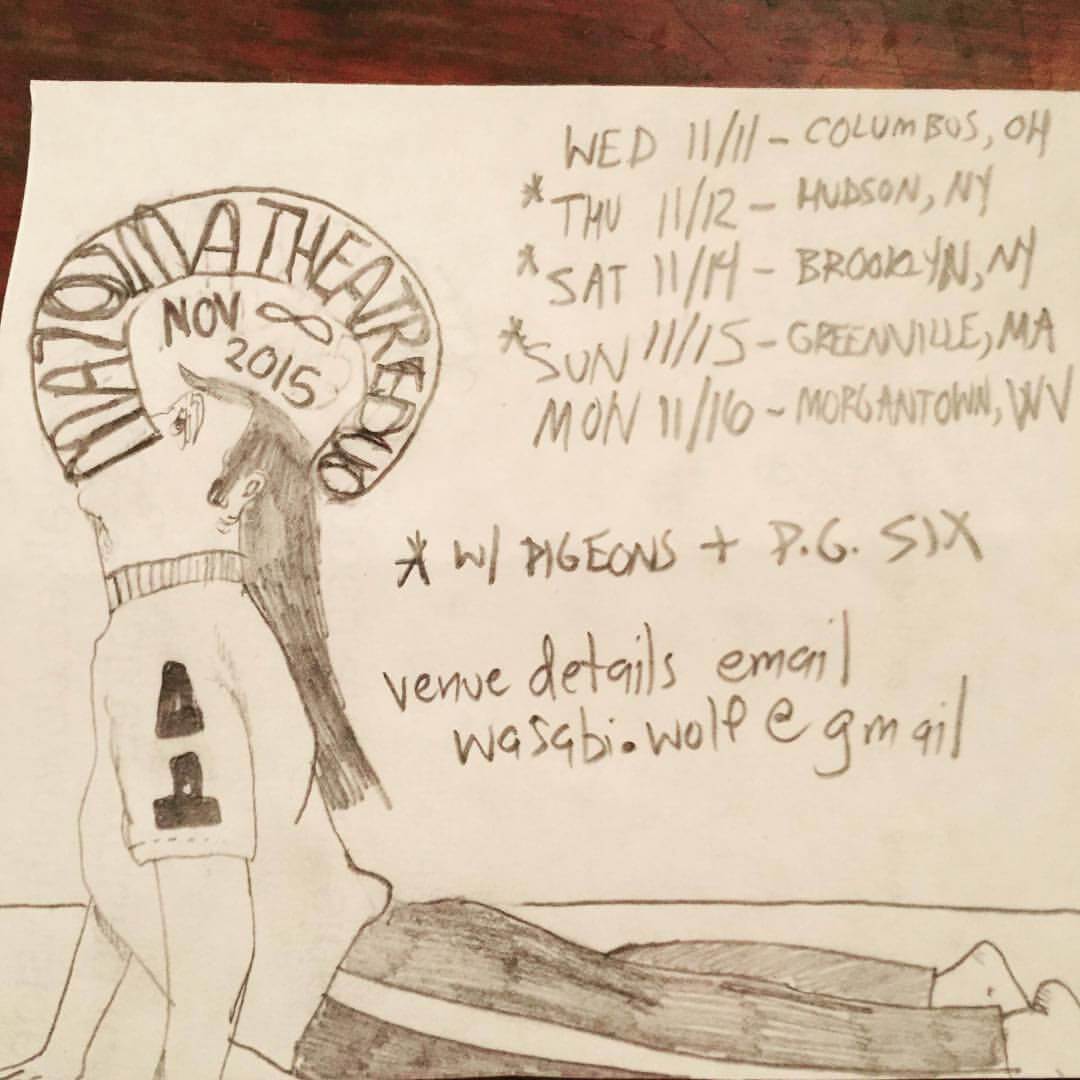 NOV ∞
2015
WED 11/11 - COLUMBUS, OH
* THU 11/12 - HUDSON, NY
* SAT 11/14 - BROOKLYN, NY
* SUN 11/15 - GREENVILLE, MA
MON 11/16 - MORGANTOWN, WV
* W/ PIGEONS + P.G. SIX
venue details email
wasabi.wolf@gmail